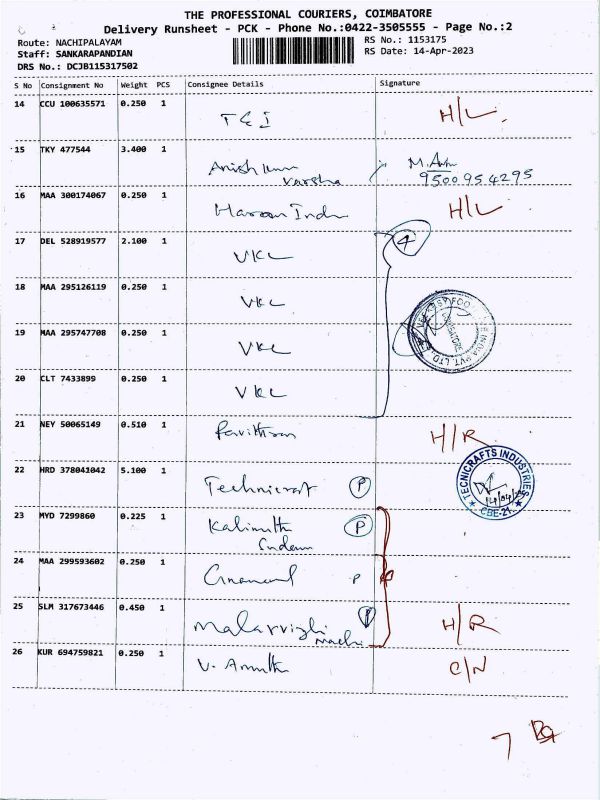 THE PROFESSIONAL COURIERS, COIMBATORE
Delivery Runsheet - PCK - Phone No.:0422-3505555 - Page No.:2
Route: NACHIPALAYAM
RS No.: 1153175
Staff: SANKARAPANDIAN
RS Date: 14-Apr-2023
DRS No.: DCJB115317502
S No Consignment No Weight PCS Consignee Details Signature
14 CCU 100635571 0.250 1
H/L
15 TKY 477544 3.400 1
9500954295
16 MAA 300174067 0.250 1
H/L
17 DEL 528919577 2.100 1
VKL
4
18 MAA 295126119 0.250 1
VKL
19 MAA 295747708 0.250 1
VKL
20 CLT 7433899 0.250 1
VKL
21 NEY 50065149 0.510 1
H/R
22 HRD 378041042 5.100 1
Technicrat P
TECNICRAFTS INDUSTRIES
CBE-21.
23 MYD 7299860 0.225 1
P
24 MAA 299593602 0.250 1
P
25 SLM 317673446 0.450 1
Malarvizhi
H/R
26 KUR 694759821 0.250 1
C/N
7